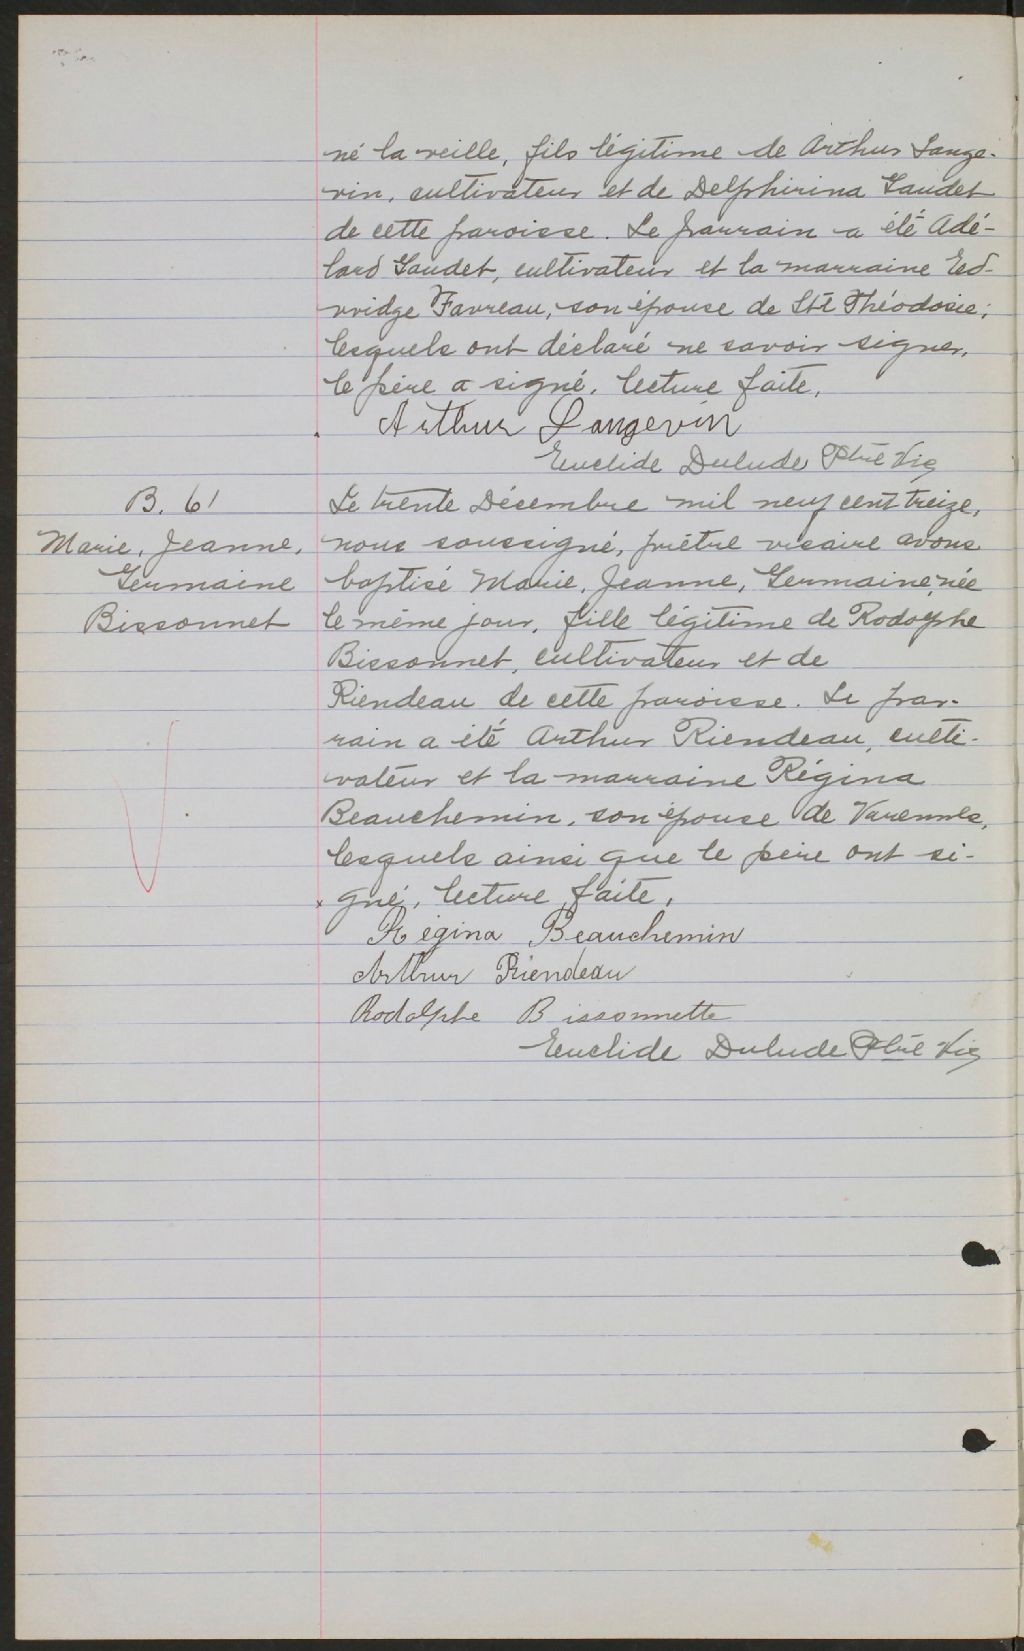 né la veille, fils légitime de Arthur Lange-
vin, cultivateur et de Delphirina Gaudet
de cette paroisse. Le parrain a été Adé-
lard Gaudet, cultivateur et la marraine Ed-
vridge Favreau, son épouse de Ste Théodosie;
lesquels ont déclaré ne savoir signer,
le père a signé, lecture faite.
Arthur Langevin
Euclide Dulude Ptre Vic
B. 61
Marie, Jeanne,
Germaine
Bissonnet
Le trente Décembre mil neuf cent treize,
nous soussigné, prêtre vicaire avons
baptisé Marie, Jeanne, Germaine, née
le même jour, fille légitime de Rodolphe
Bissonnet, cultivateur et de
Riendeau de cette paroisse. Le par-
rain a été Arthur Riendeau, culti-
vateur et la marraine Régina
Beauchemin, son épouse de Varennes,
lesquels ainsi que le père ont si-
gné, lecture faite.
Régina Beauchemin
Arthur Riendeau
Rodolphe Bissonnette
Euclide Dulude Ptre Vic